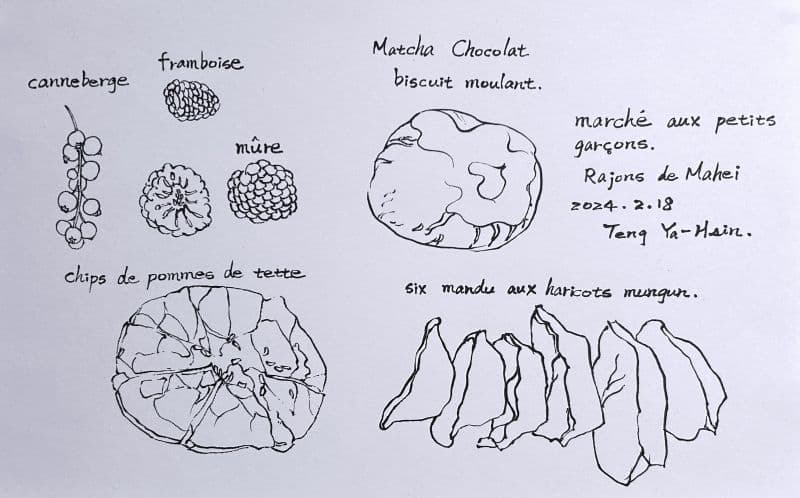 canneberge
framboise
mûre
Matcha Chocolat
biscuit moulant.
marché aux petits
garçons.
Rajons de Mahei
2024.2.18
Teng Ya-Hsin.
chips de pommes de tette
six mandu aux haricots mungun.